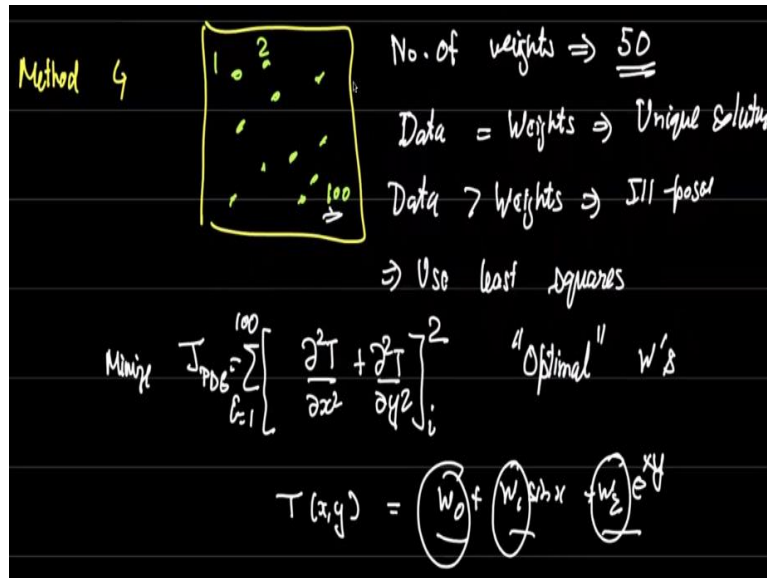 Method 4
1 2
100
No. of weights ⇒ 50
Data = Weights ⇒ Unique
Data > Weights ⇒ Ill-posed
⇒ Use least squares
J_PDE = Σ_{i=1}^{100} [ ∂²T/∂x² + ∂²T/∂y² ]_i² "Optimal" W's
T(x,y) = W₀ + W₁ sin x + W₂ e^{xy}